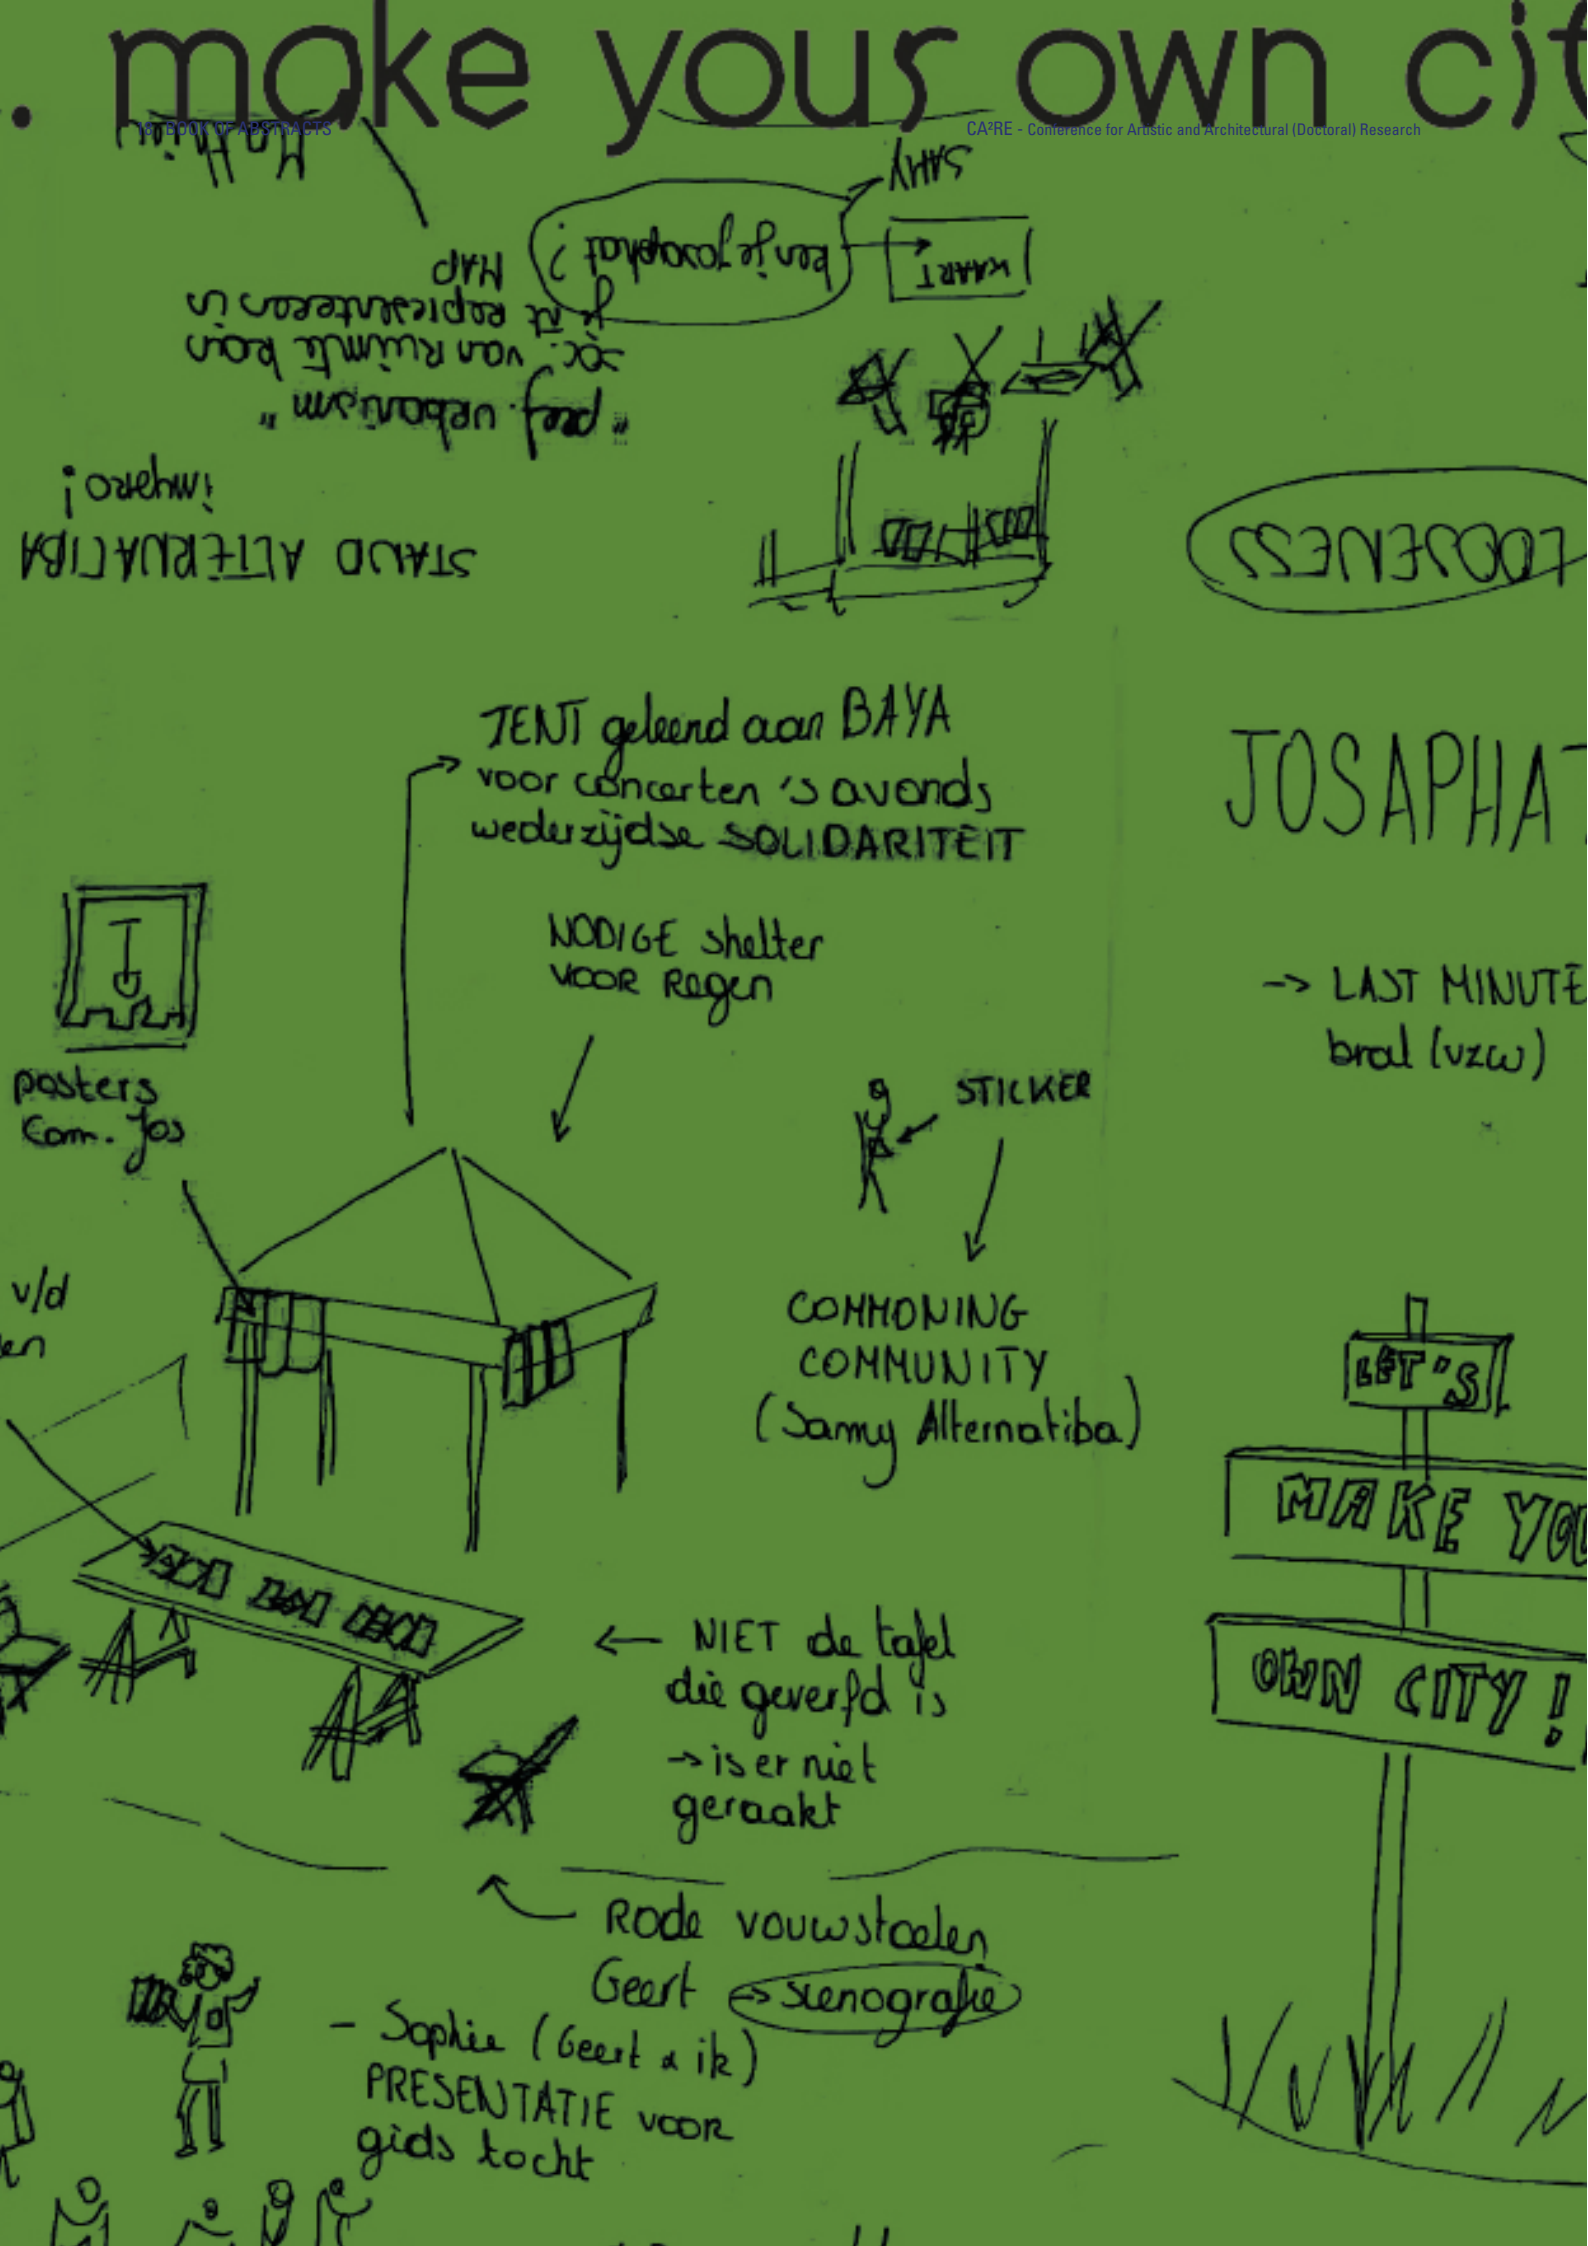 . make your own cit
18 BOOK OF ABSTRACTS
CA²RE - Conference for Artistic and Architectural (Doctoral) Research
Mathieu
SAMY
KAART
ken je josaphat?
"perf. urbanism"
soc. van Ruimte kan
je niet representeren in
MAP
STAND ALTERNATIBA
impro!
LOOSENESS
TENT geleend aan BAYA
voor concerten 's avonds
wederzijdse SOLIDARITEIT
JOSAPHAT
NODIGE shelter
VOOR Regen
-> LAST MINUTE
bral (vzw)
posters
Com. Jos
STICKER
v/d
en
COMMONING
COMMUNITY
(Samy Alternatiba)
LET'S
MAKE YOU
OWN CITY!
NIET de tafel
die geverfd is
-> is er niet
geraakt
Rode vouwstoelen
Geert -> scenografie
- Sophie (Geert & ik)
PRESENTATIE voor
gids tocht